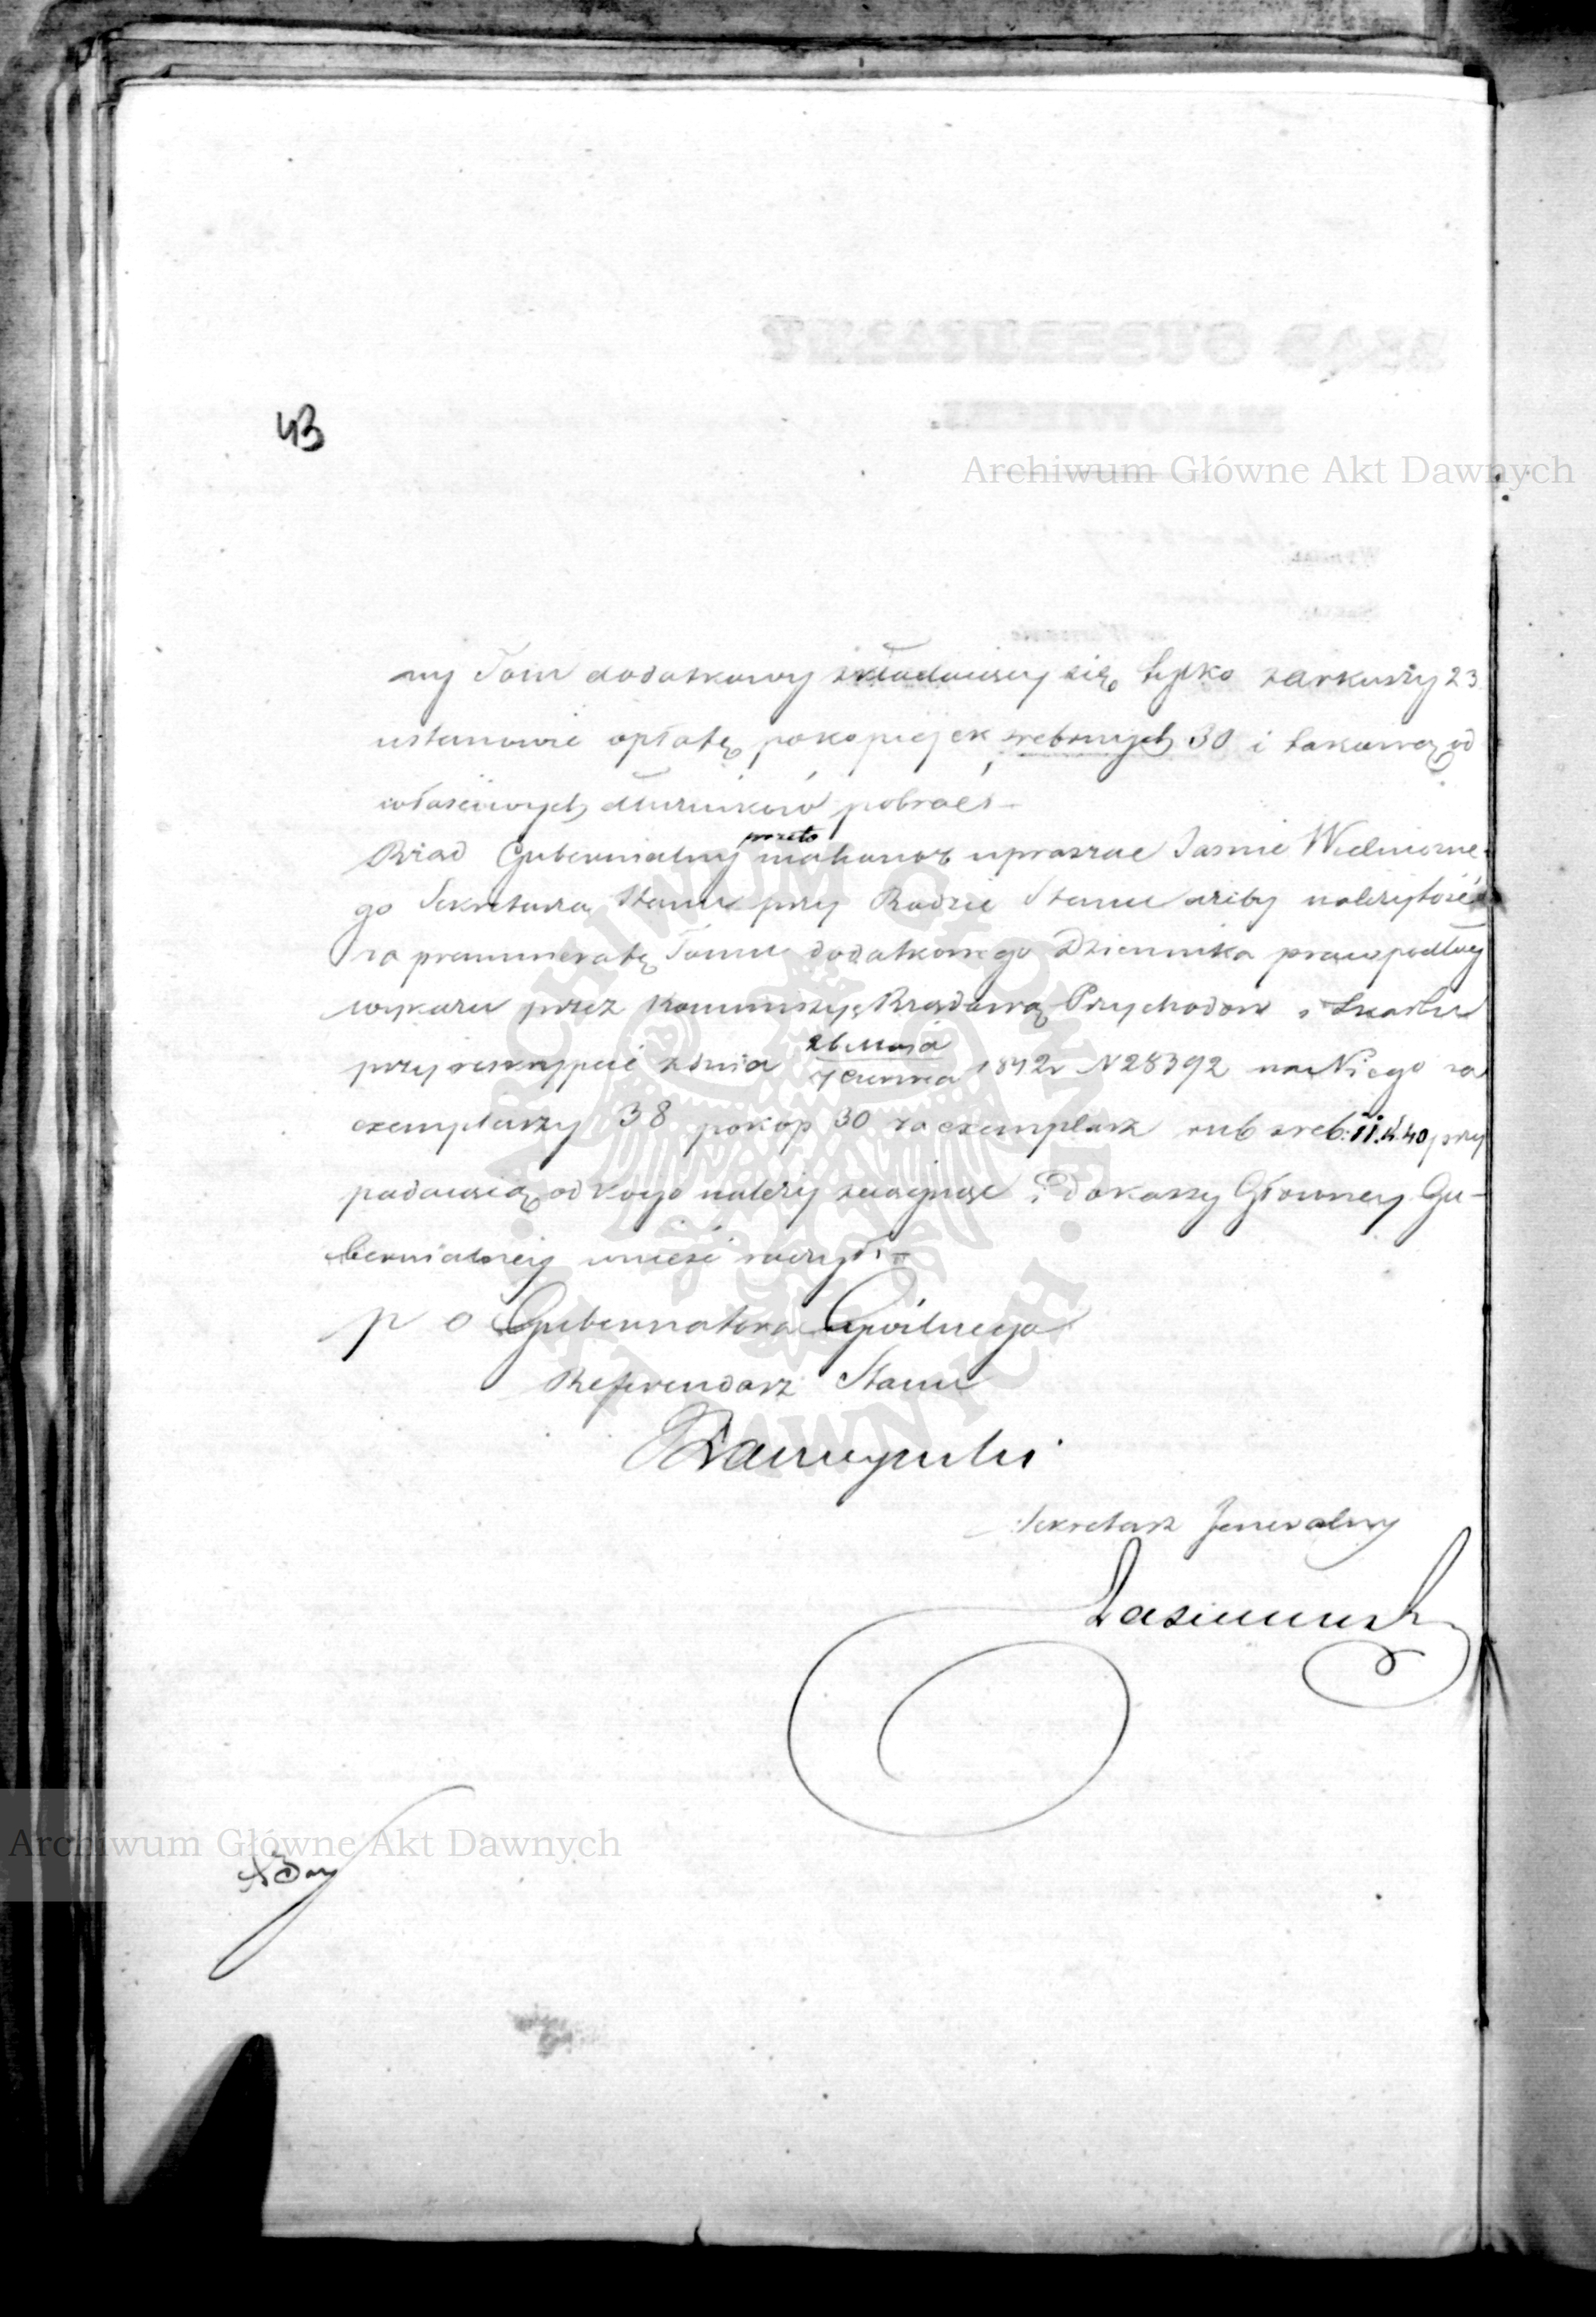 43
Archiwum Główne Akt Dawnych
ny Tom dodatkowy składaiący się tylko z arkuszy 23
ustanowić opłatę po kopiejek srebrnych 30 i takową od
właściwych dłużników pobrać.–
Rząd Gubernialny przeto ma honor upraszać Jaśnie Wielmożne-
go Sekretarza Stanu przy Radzie Stanu ażeby należytość
za prenumeratę Tomu dodatkowego Dziennika praw podług
wykazu przez Kommissyę Rządową Przychodów i Skarbu
przy reskrypcie z dnia 26 Maja / 7 Czerwca 1842 r N 28392 na Niego za
exemplarzy 38 po kop 30 za exemplarz rub sreb: 11. k. 40 przy
padaiącą od kogo należy ściągnąć i do kassy Głównej Gu-
bernialnej wnieść raczył.–
p o Gubernatora Cywilnego
Referendarz Stanu
Sekretarz Jeneralny
Archiwum Główne Akt Dawnych
ARCHIWUM GŁÓWNE AKT DAWNYCH